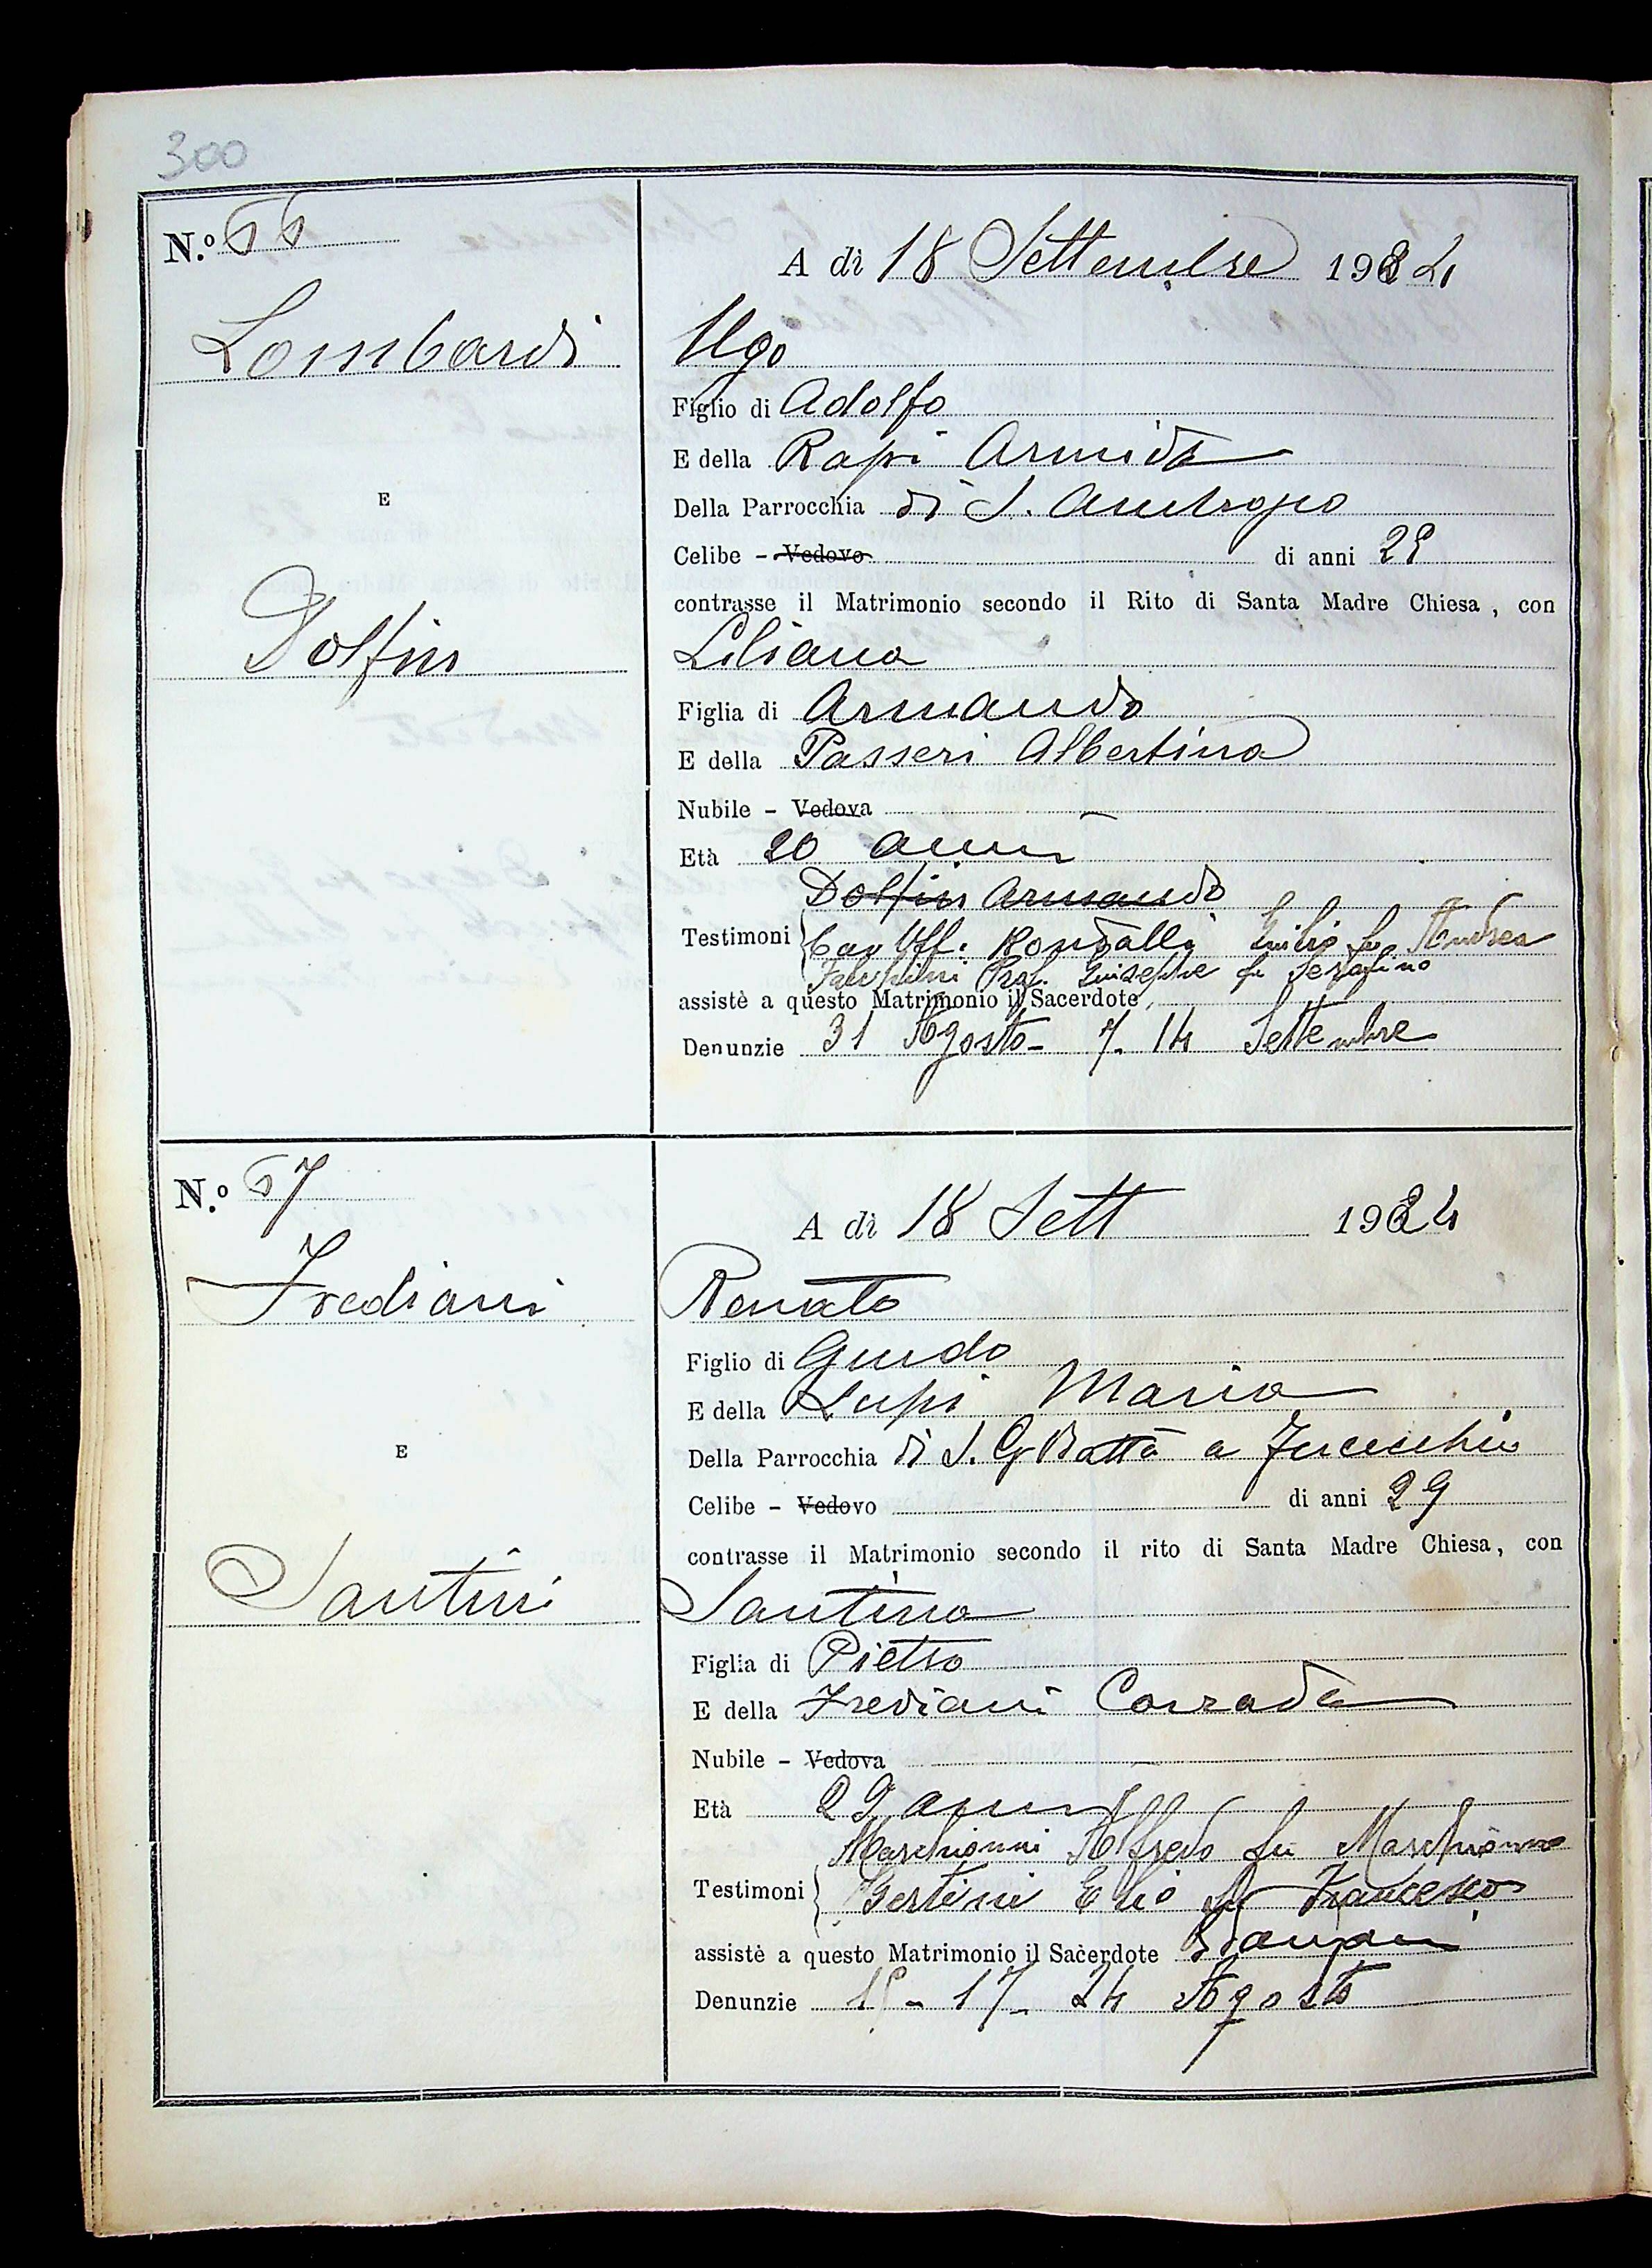 300
N.o 56
A dì 18 Settembre 1924
Lombardi
Ugo
Figlio di Adolfo
E della Rapi Armida
Della Parrocchia di S.
E
Celibe - Vedovo di anni 28
contrasse il Matrimonio secondo il Rito di Santa Madre Chiesa, con
Dolfin
Liliana
Figlia di Armando
E della Passeri Albertina
Nubile - Vedova
Età 20 anni
Dolfin Armando
Testimoni Cav Uff: fu Andrea
Prof. Giuseppe fu Serafino
assistè a questo Matrimonio il Sacerdote
Denunzie 31 Agosto - 7. 14 Settembre
N.o 57
A dì 18 Sett 1924
Frediani
Renato
Figlio di Guido
E della Lupi Maria
Della Parrocchia di S. G Batta a Fucecchio
E
Celibe - Vedovo di anni 29
contrasse il Matrimonio secondo il rito di Santa Madre Chiesa, con
Santini
Santina
Figlia di Pietro
E della Frediani Corrada
Nubile - Vedova
Età 29 anni
Marchionni Alfredo fu Marchionne
Testimoni Bertini Elio fu Francesco
assistè a questo Matrimonio il Sacerdote
Denunzie 15 - 17 - 24 Agosto